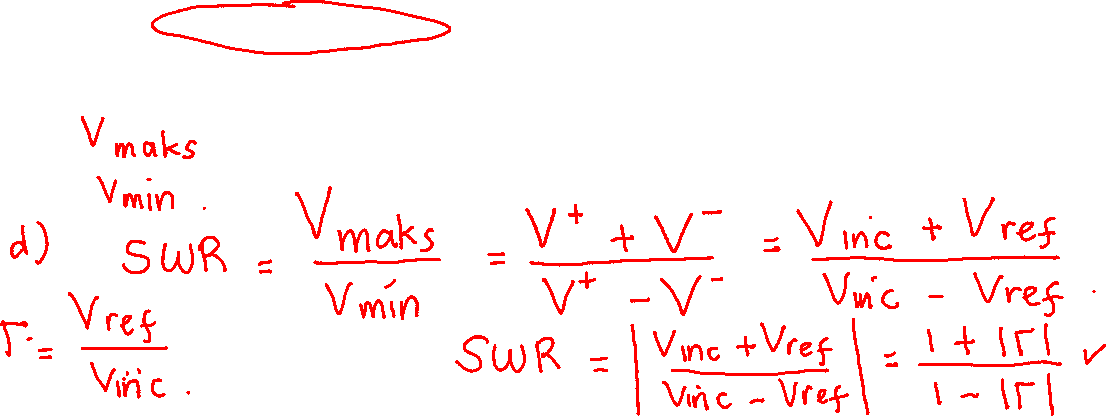 V maks
V min .
d) SWR = V maks / V min = V⁺ + V⁻ / V⁺ - V⁻ = V inc + V ref / V inc - V ref .
Γ = V ref / V inc . SWR = | V inc + V ref / V inc - V ref | = 1 + |Γ| / 1 - |Γ| ✓